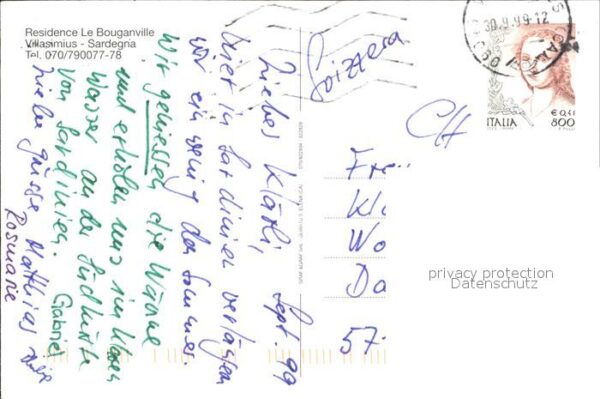 Residence Le Bouganville
Villasimius - Sardegna
Tel. 070/790077-78
30.9.99-12
ITALIA
€ 0,41
800
Svizzera
CH
Fre
Kl
Wo
Da
57.
privacy protection
Datenschutz
Sept. 99
Liebes Klärli,
hier in Sardinien verlängern
wir ein wenig den Sommer.
Wir geniessen die Wärme
und erholen uns im klaren
Wasser an der Südküste
von Sardinien. Gabriel
Liebe Grüsse Matthias
Rosmarie